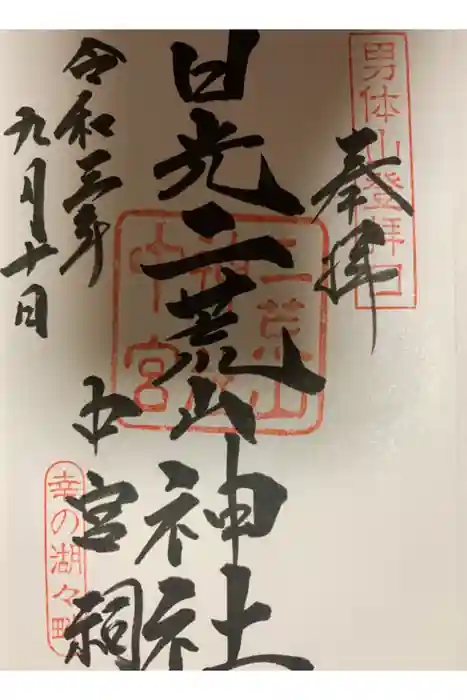 男体山登拝口
奉拝
日光二荒山神社
中宮祠
二荒山
神社
中宮
令和三年
九月十日
幸の湖々畔